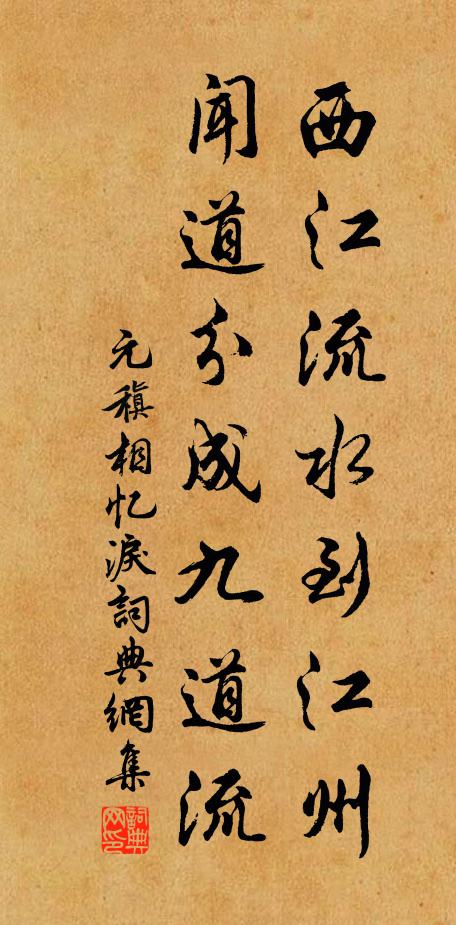 西江流水到江州
闻道分成九道流
元稹相忆淚詞典網集
詞典网印